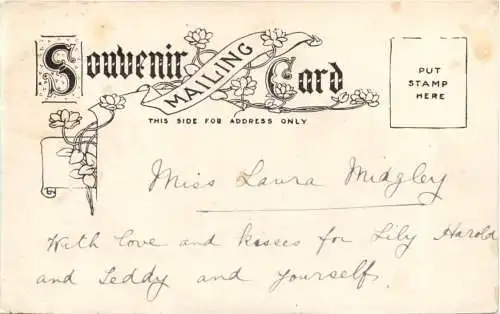 Souvenir MAILING Card
PUT
STAMP
HERE
THIS SIDE FOR ADDRESS ONLY
Miss Laura Midgley
With love and kisses for Lily Harold
and Teddy and yourself.